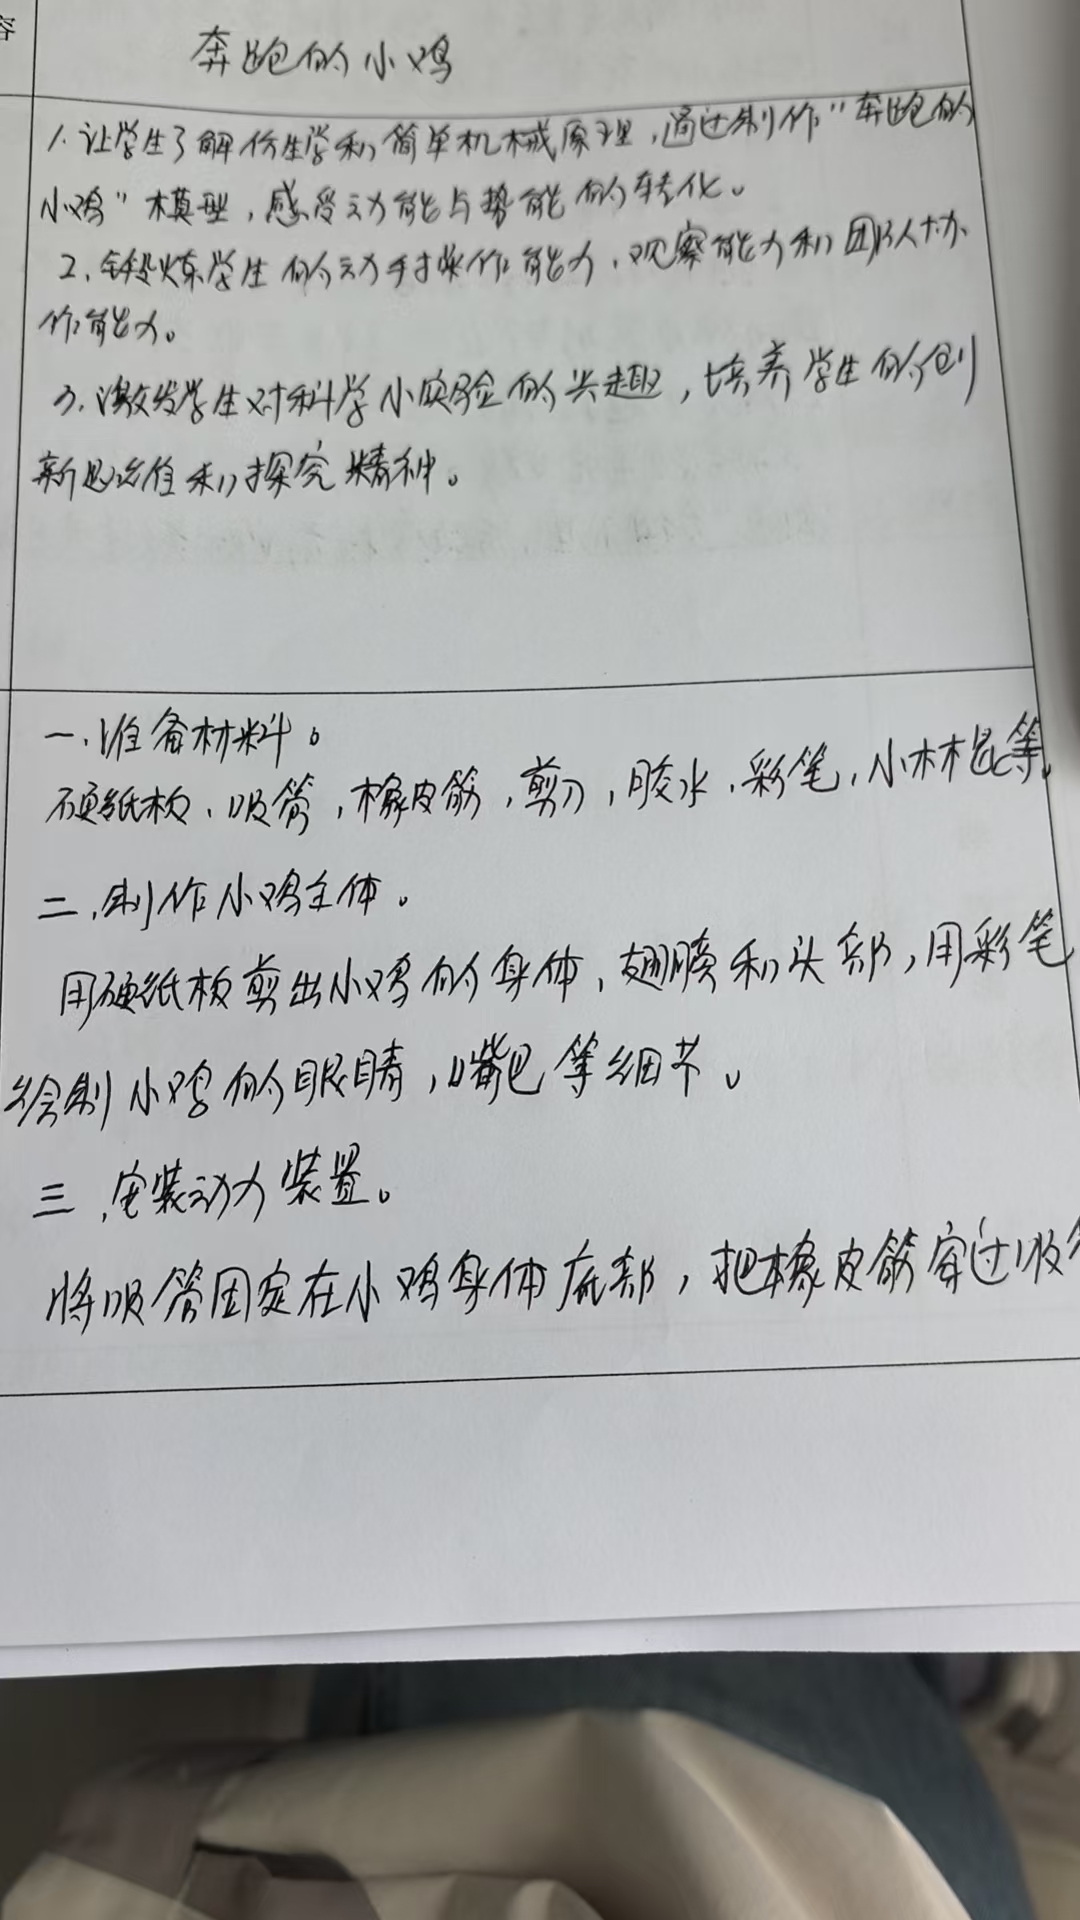 容
奔跑的小鸡
1.让学生了解仿生学和简单机械原理,通过制作“奔跑的
小鸡”模型,感受动能与势能的转化。
2.锻炼学生的动手操作能力,观察能力和团队协
作能力。
3.激发学生对科学小实验的兴趣,培养学生的创
新思维和探究精神。
一.准备材料。
硬纸板、吸管,橡皮筋,剪刀,胶水,彩笔,小木棍等。
二.制作小鸡主体。
用硬纸板剪出小鸡的身体,翅膀和头部,用彩笔
绘制小鸡的眼睛,嘴巴等细节。
三.安装动力装置。
将吸管固定在小鸡身体底部,把橡皮筋穿过吸